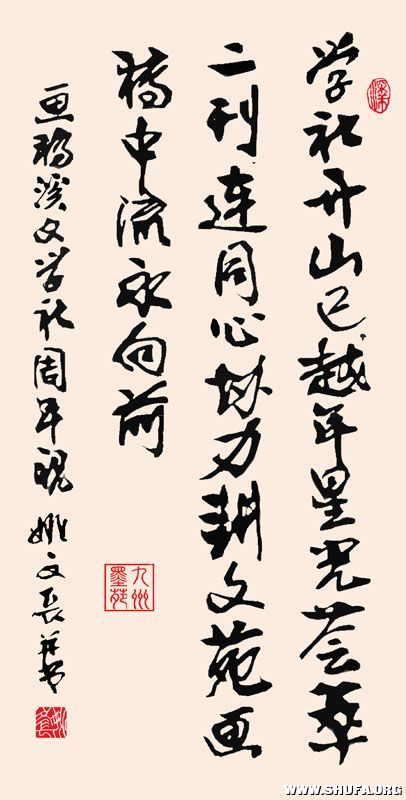 学社开山已越年星光荟萃
二刊连同心协力耕文苑画
稿中流永向前
画稿溪文学社周年 姚文长并书
九州墨苑
WWW.SHUFA.ORG